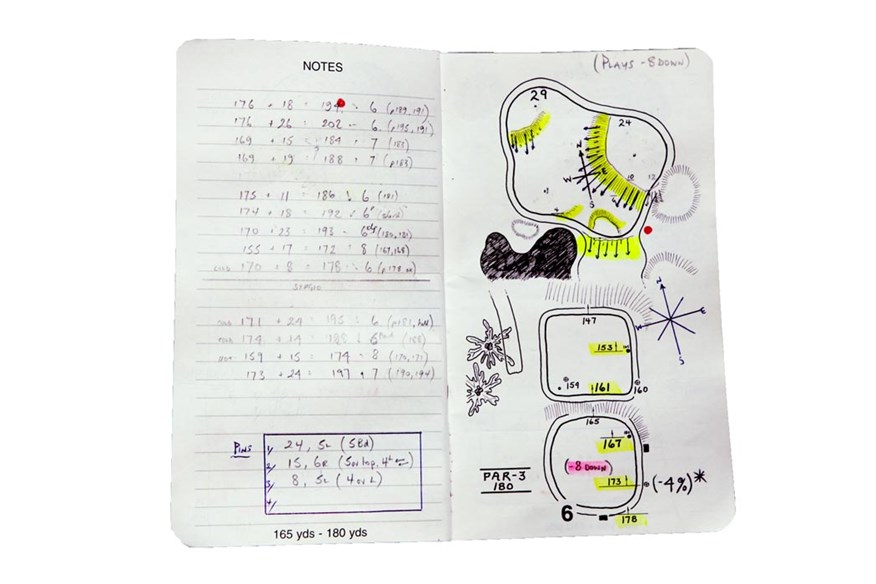 NOTES
176 + 18 = 194 - 6 (p189, 191)
176 + 26 = 202 - 6 (p195, 191)
169 + 15 = 184 - 7 (183)
169 + 19 = 188 - 7 (p183)
175 + 11 = 186 - 6 (181)
174 + 18 = 192 - 6
170 + 23 = 193 - 6
155 + 17 = 172 - 8 (167, 168)
170 + 8 = 178 - 6 (p178
171 + 24 = 195 - 6
174 + 14
159 + 15 = 174 - 8 (170, 171)
173 + 24 = 197 - 7 (190, 194)
PINS
1/ 24, 5L (5Bd)
2/ 15, 6R
3/ 8, 5L (4 ov L)
4/
165 yds - 180 yds
(PLAYS -8 DOWN)
29
24
10
12
N
W
E
S
4
N
W
E
S
147
153
159
161
160
165
167
(-8 DOWN)
PAR-3
180
173
(-4%)*
6
178